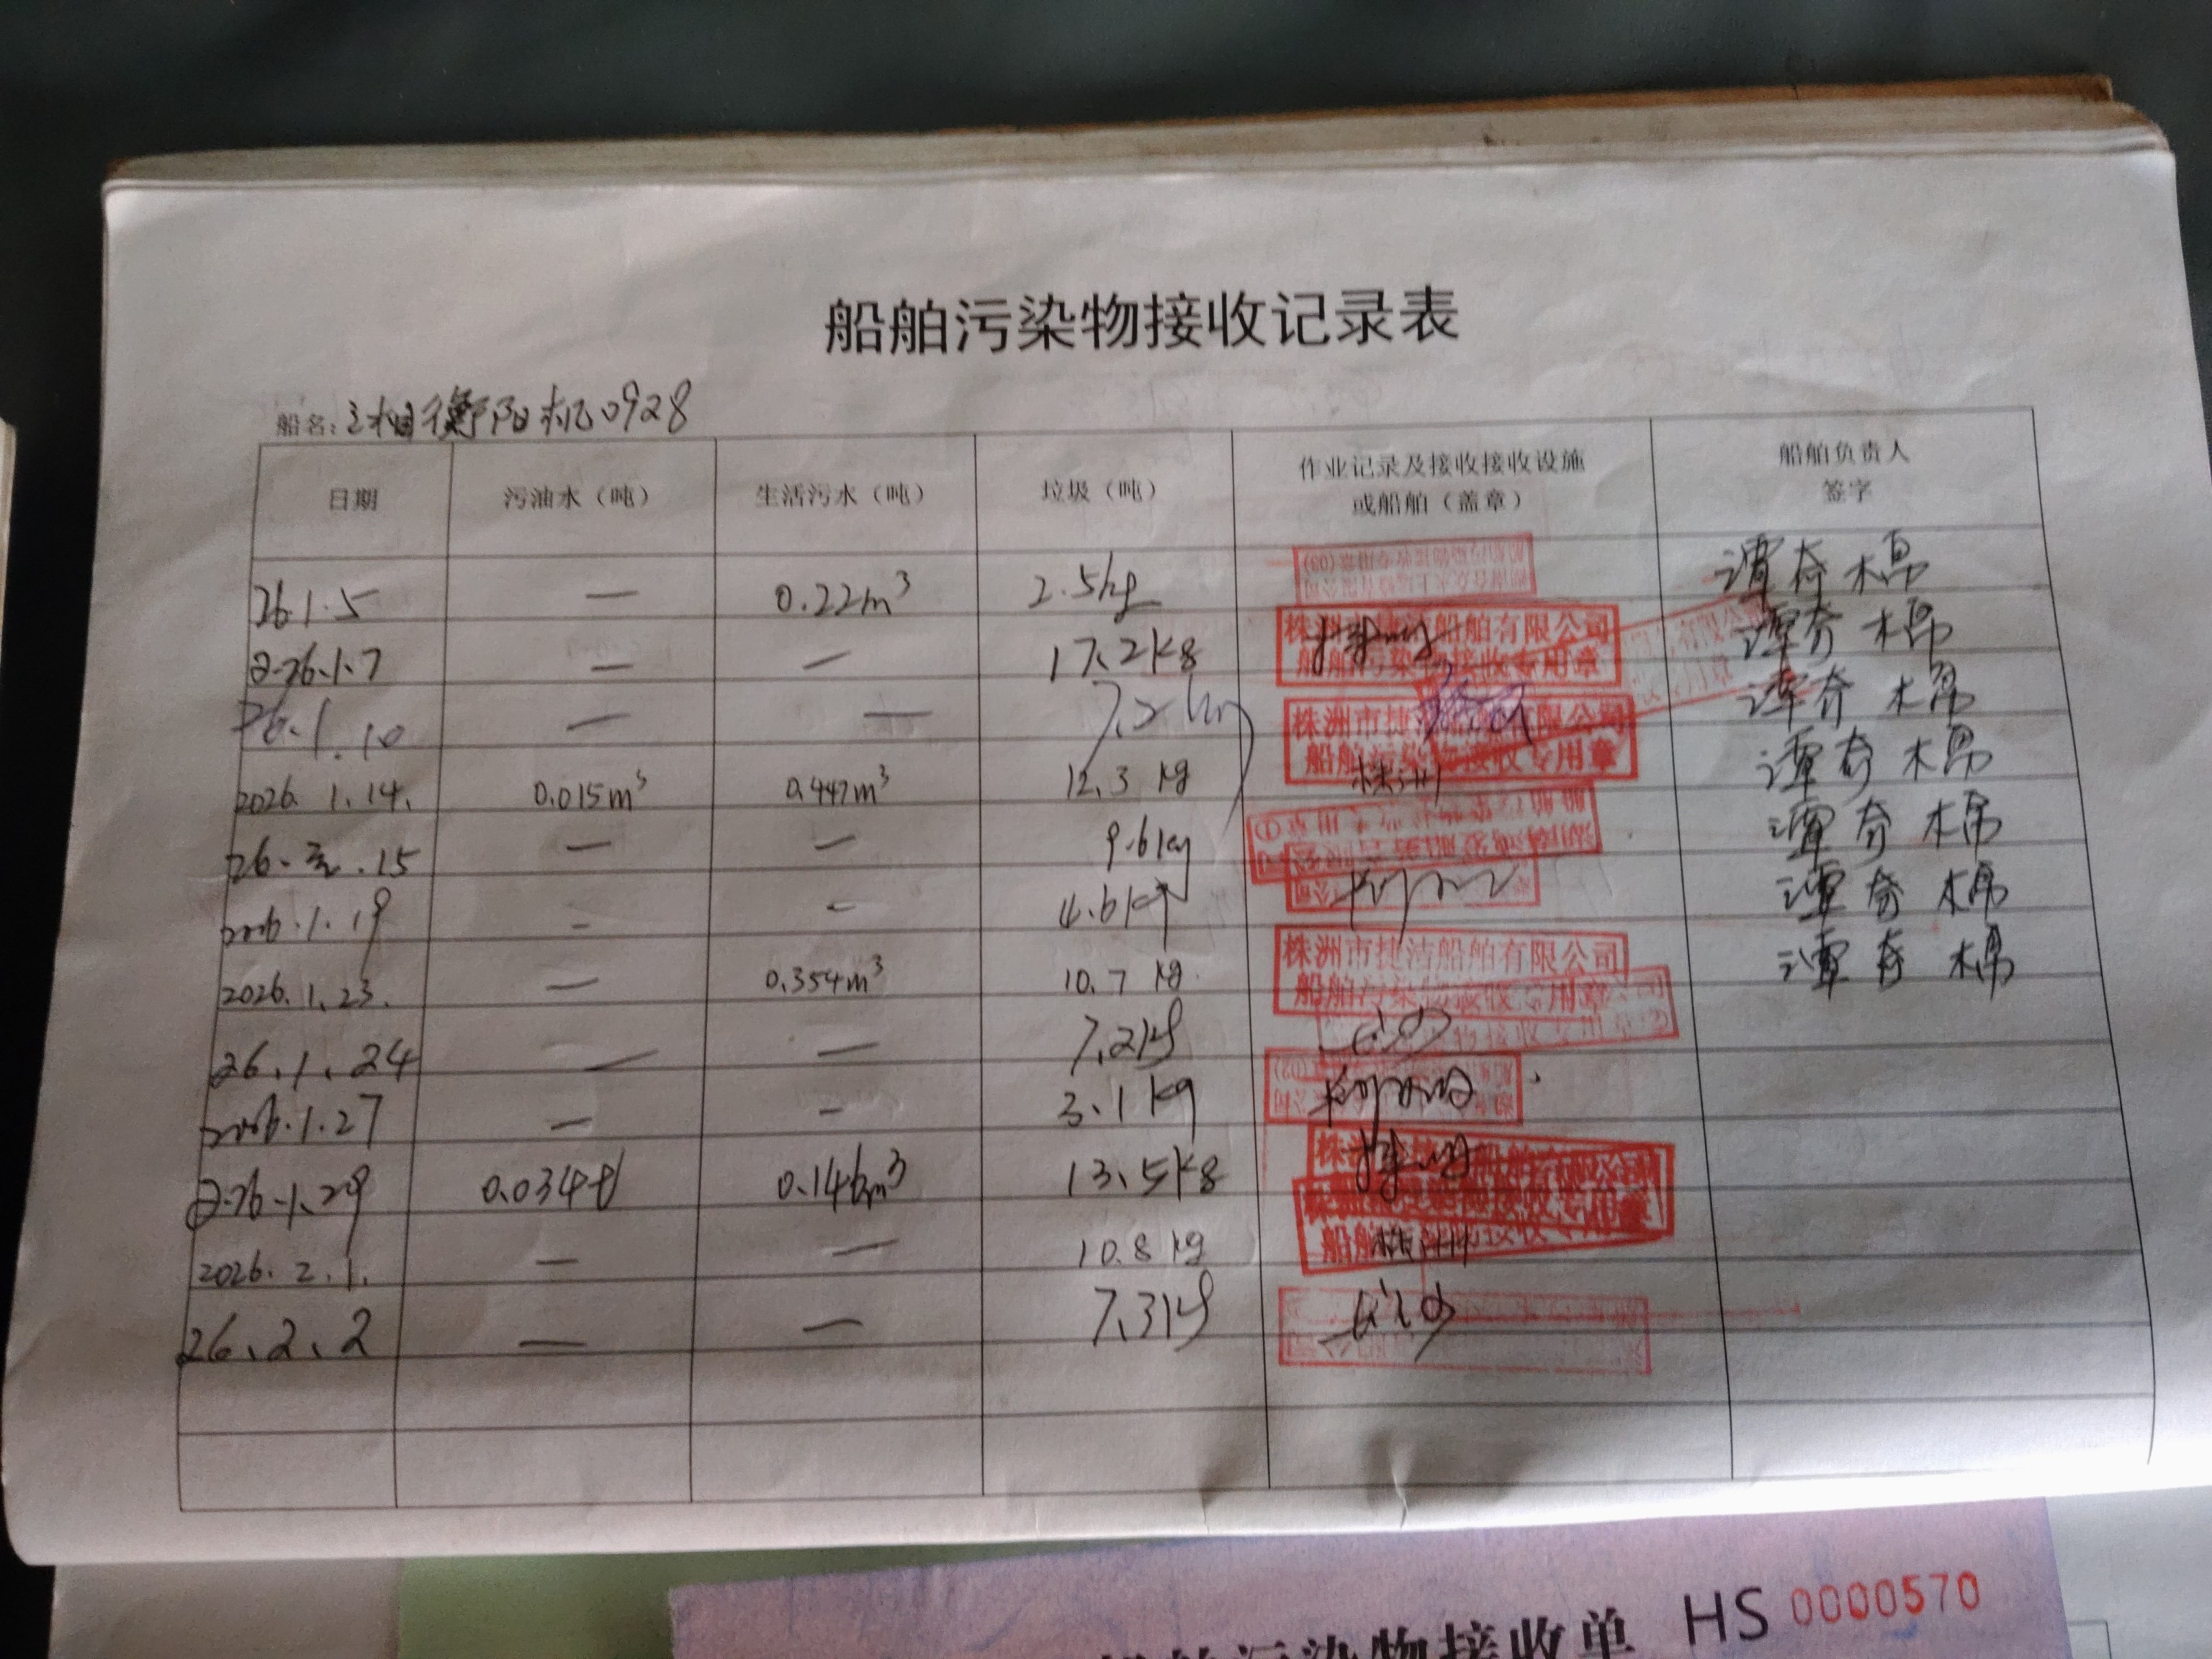 船舶污染物接收记录表
船名: 湘衡阳机0928
日期 污油水（吨） 生活污水（吨） 垃圾（吨） 作业记录及接收接收设施或船舶（盖章） 船舶负责人签字
26.1.5 — 0.22m³ 2.5kg 谭奇棉
26.1.7 — — 17.2kg 株洲市捷洁船舶有限公司 船舶污染物接收专用章 谭奇棉
26.1.10 — — 7.2kg 谭奇棉
2026.1.14. 0.015m³ 0.447m³ 12.3 kg 株洲市捷洁船舶有限公司 船舶污染物接收专用章 株洲 谭奇棉
26. .15 — — 9.6kg 谭奇棉
2026.1.19 - - 4.6kg 谭奇棉
2026.1.23. — 0.354m³ 10.7 kg. 株洲市捷洁船舶有限公司 船舶污染物接收专用章 谭奇棉
26.1.24 — — 7.2kg 长沙
2026.1.27 — - 3.1kg
2026.1.29 0.034t 0.146m³ 13.5kg
2026.2.1. — — 10.8 kg 船舶污染物接收专用章 株洲
26.2.2 — — 7.3kg 长沙
船舶污染物接收单 HS 0000570